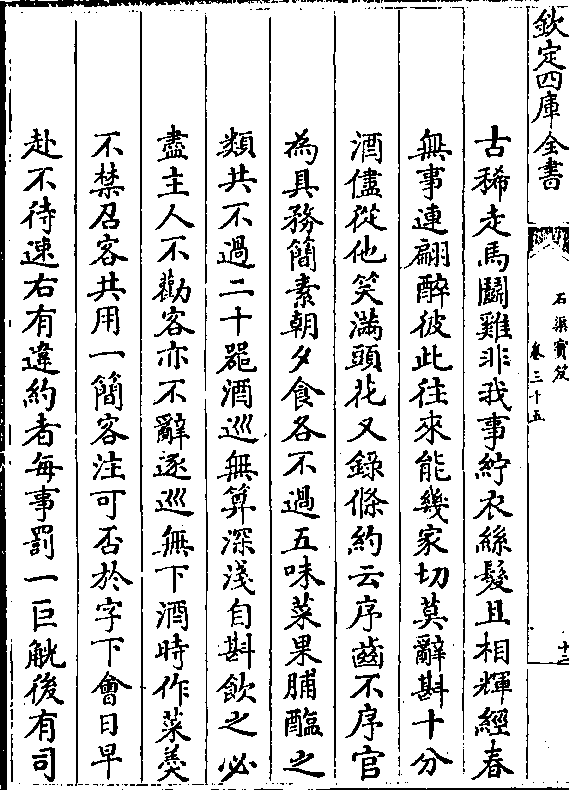 欽定四庫全書
石渠寶笈
卷三十五
十三
古稀走馬鬬雞非我事紵衣絲髮且相輝經春
無事連翩醉彼此往來能幾家切莫辭斟十分
酒儘從他笑滿頭花又錄條約云序齒不序官
為具務簡素朝夕食各不過五味菜果脯醢之
類共不過二十器酒巡無算深淺自斟飲之必
盡主人不勸客亦不辭逐巡無下酒時作菜羮
不禁召客共用一簡客注可否於字下會日早
赴不待速右有違約者每事罰一巨觥後有司